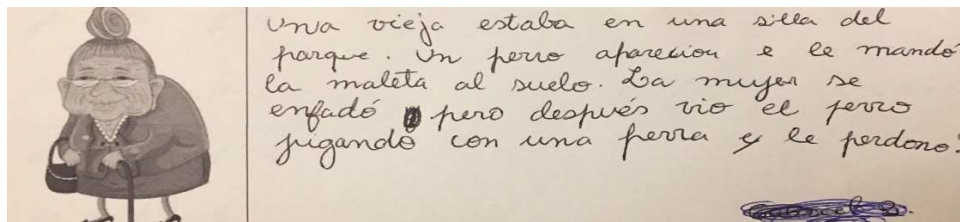 una vieja estaba en una silla del
parque. Un perro aparecion e le mandó
la maleta al suelo. La mujer se
enfadó pero después vio el perro
jugando con una perra y le perdono.